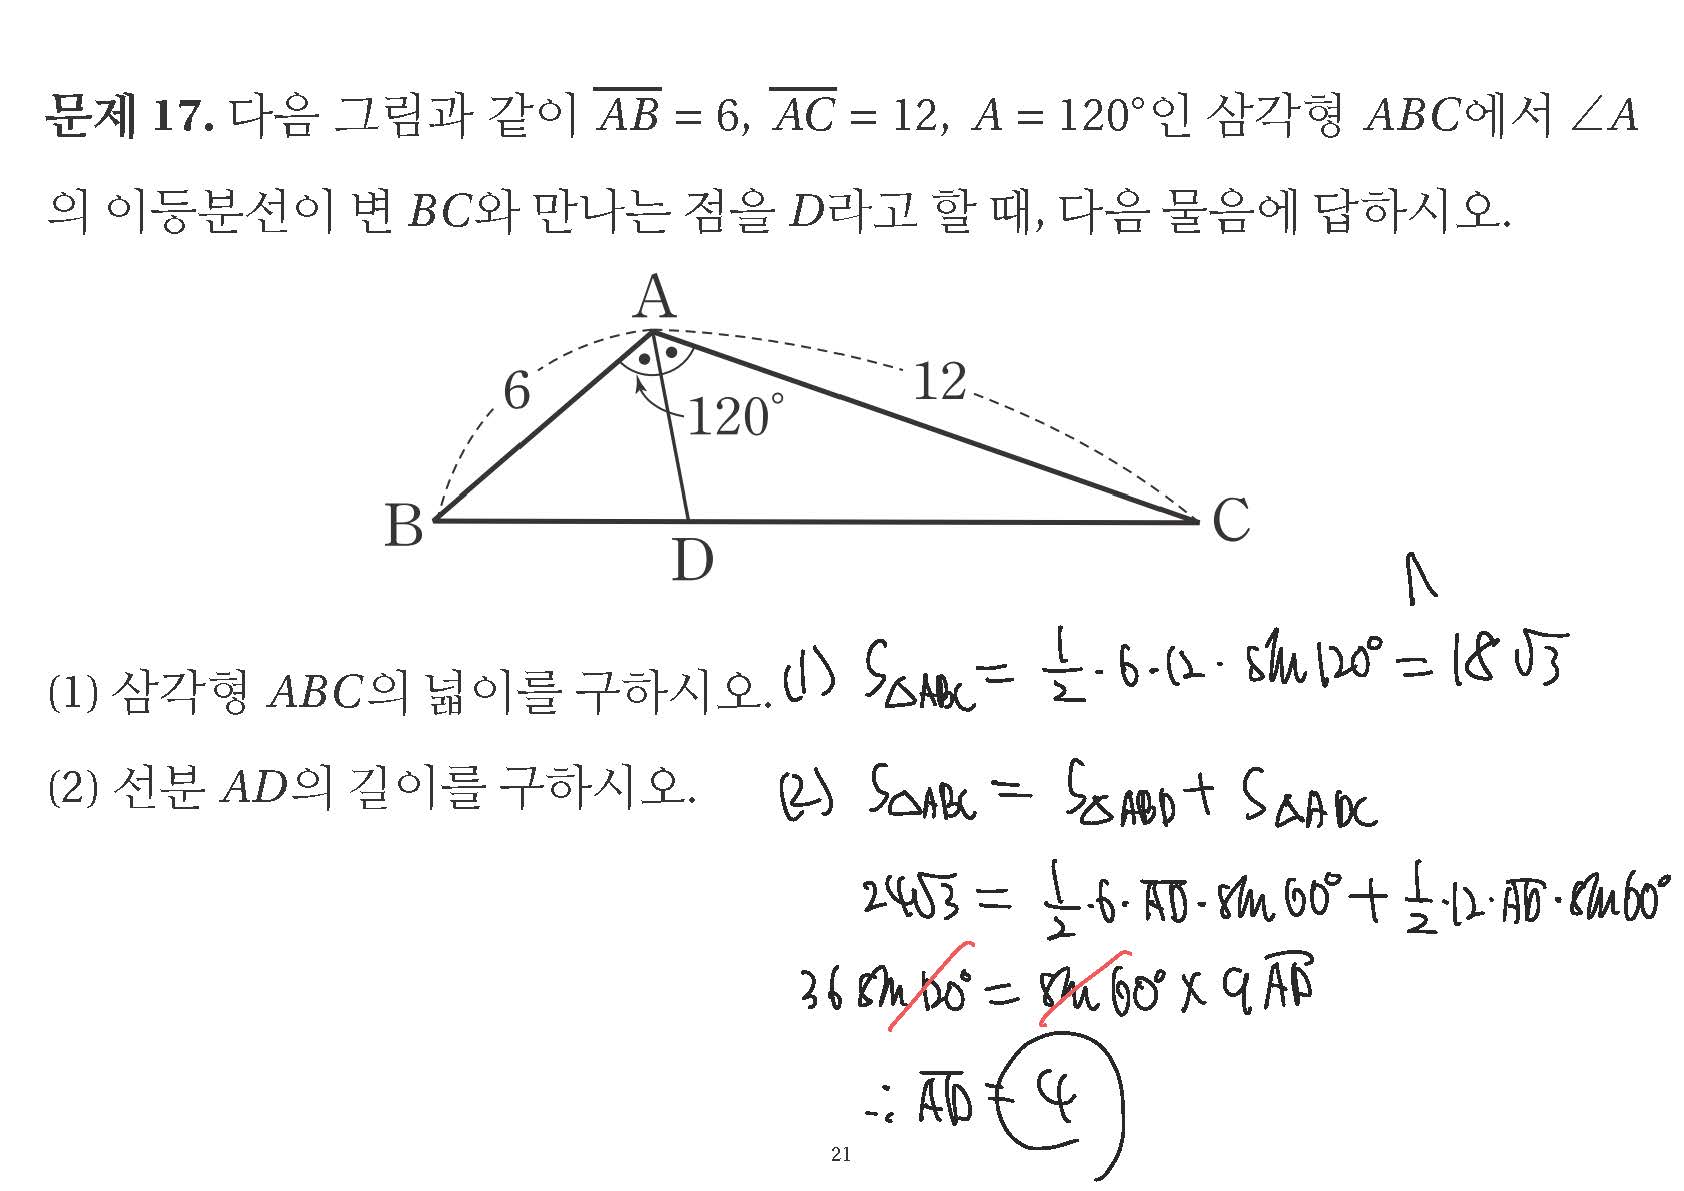 문제 17. 다음 그림과 같이 AB = 6, AC = 12, A = 120°인 삼각형 ABC에서 ∠A
의 이등분선이 변 BC와 만나는 점을 D라고 할 때, 다음 물음에 답하시오.
A
6
12
120°
B
D
C
(1) 삼각형 ABC의 넓이를 구하시오.
(1) S△ABC = 1/2 · 6 · 12 · sin120° = 18√3
(2) 선분 AD의 길이를 구하시오.
(2) S△ABC = S△ABD + S△ADC
24√3 = 1/2 · 6 · AD · sin60° + 1/2 · 12 · AD · sin60°
36 sin120° = sin60° × 9 AD
∴ AD = 4
21